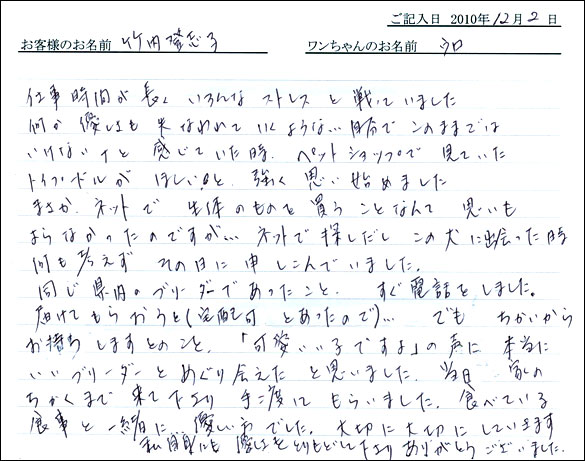 ご記入日 2010年 12月 2日
お客様のお名前 竹内 子 ワンちゃんのお名前
仕事時間が長く いろんな ストレス と 戦っていました
何か 優しさも 失なわれて いくような… 自分で このままでは
いけないナと 感じていた時、ペットショップで 見ていた
トイプードルが ほしいと、強く 思い 始めました
まさか、ネットで 生体のものを 買う ことなんて 思いも
よらなかったのですが… ネットで 探しだし この犬に出会った時
何も考えず その日に 申しこんでいました。
同じ県内のブリーダーであったこと、 すぐ電話をしました。
届けてもらおうと(宅配可 とあったので)… でも ちかいから
お持ちしますとのこと、「可愛いい子ですよ」の声に 本当に
いいブリーダーとめぐり会えた と思いました。当日 家の
ちかくまで 来て下さり 手に渡して もらいました。食べている
食事と一緒に 優しい方でした。大切に大切にしていきます
私自身にも 優しさをとりもどして下さり ありがとうございました。